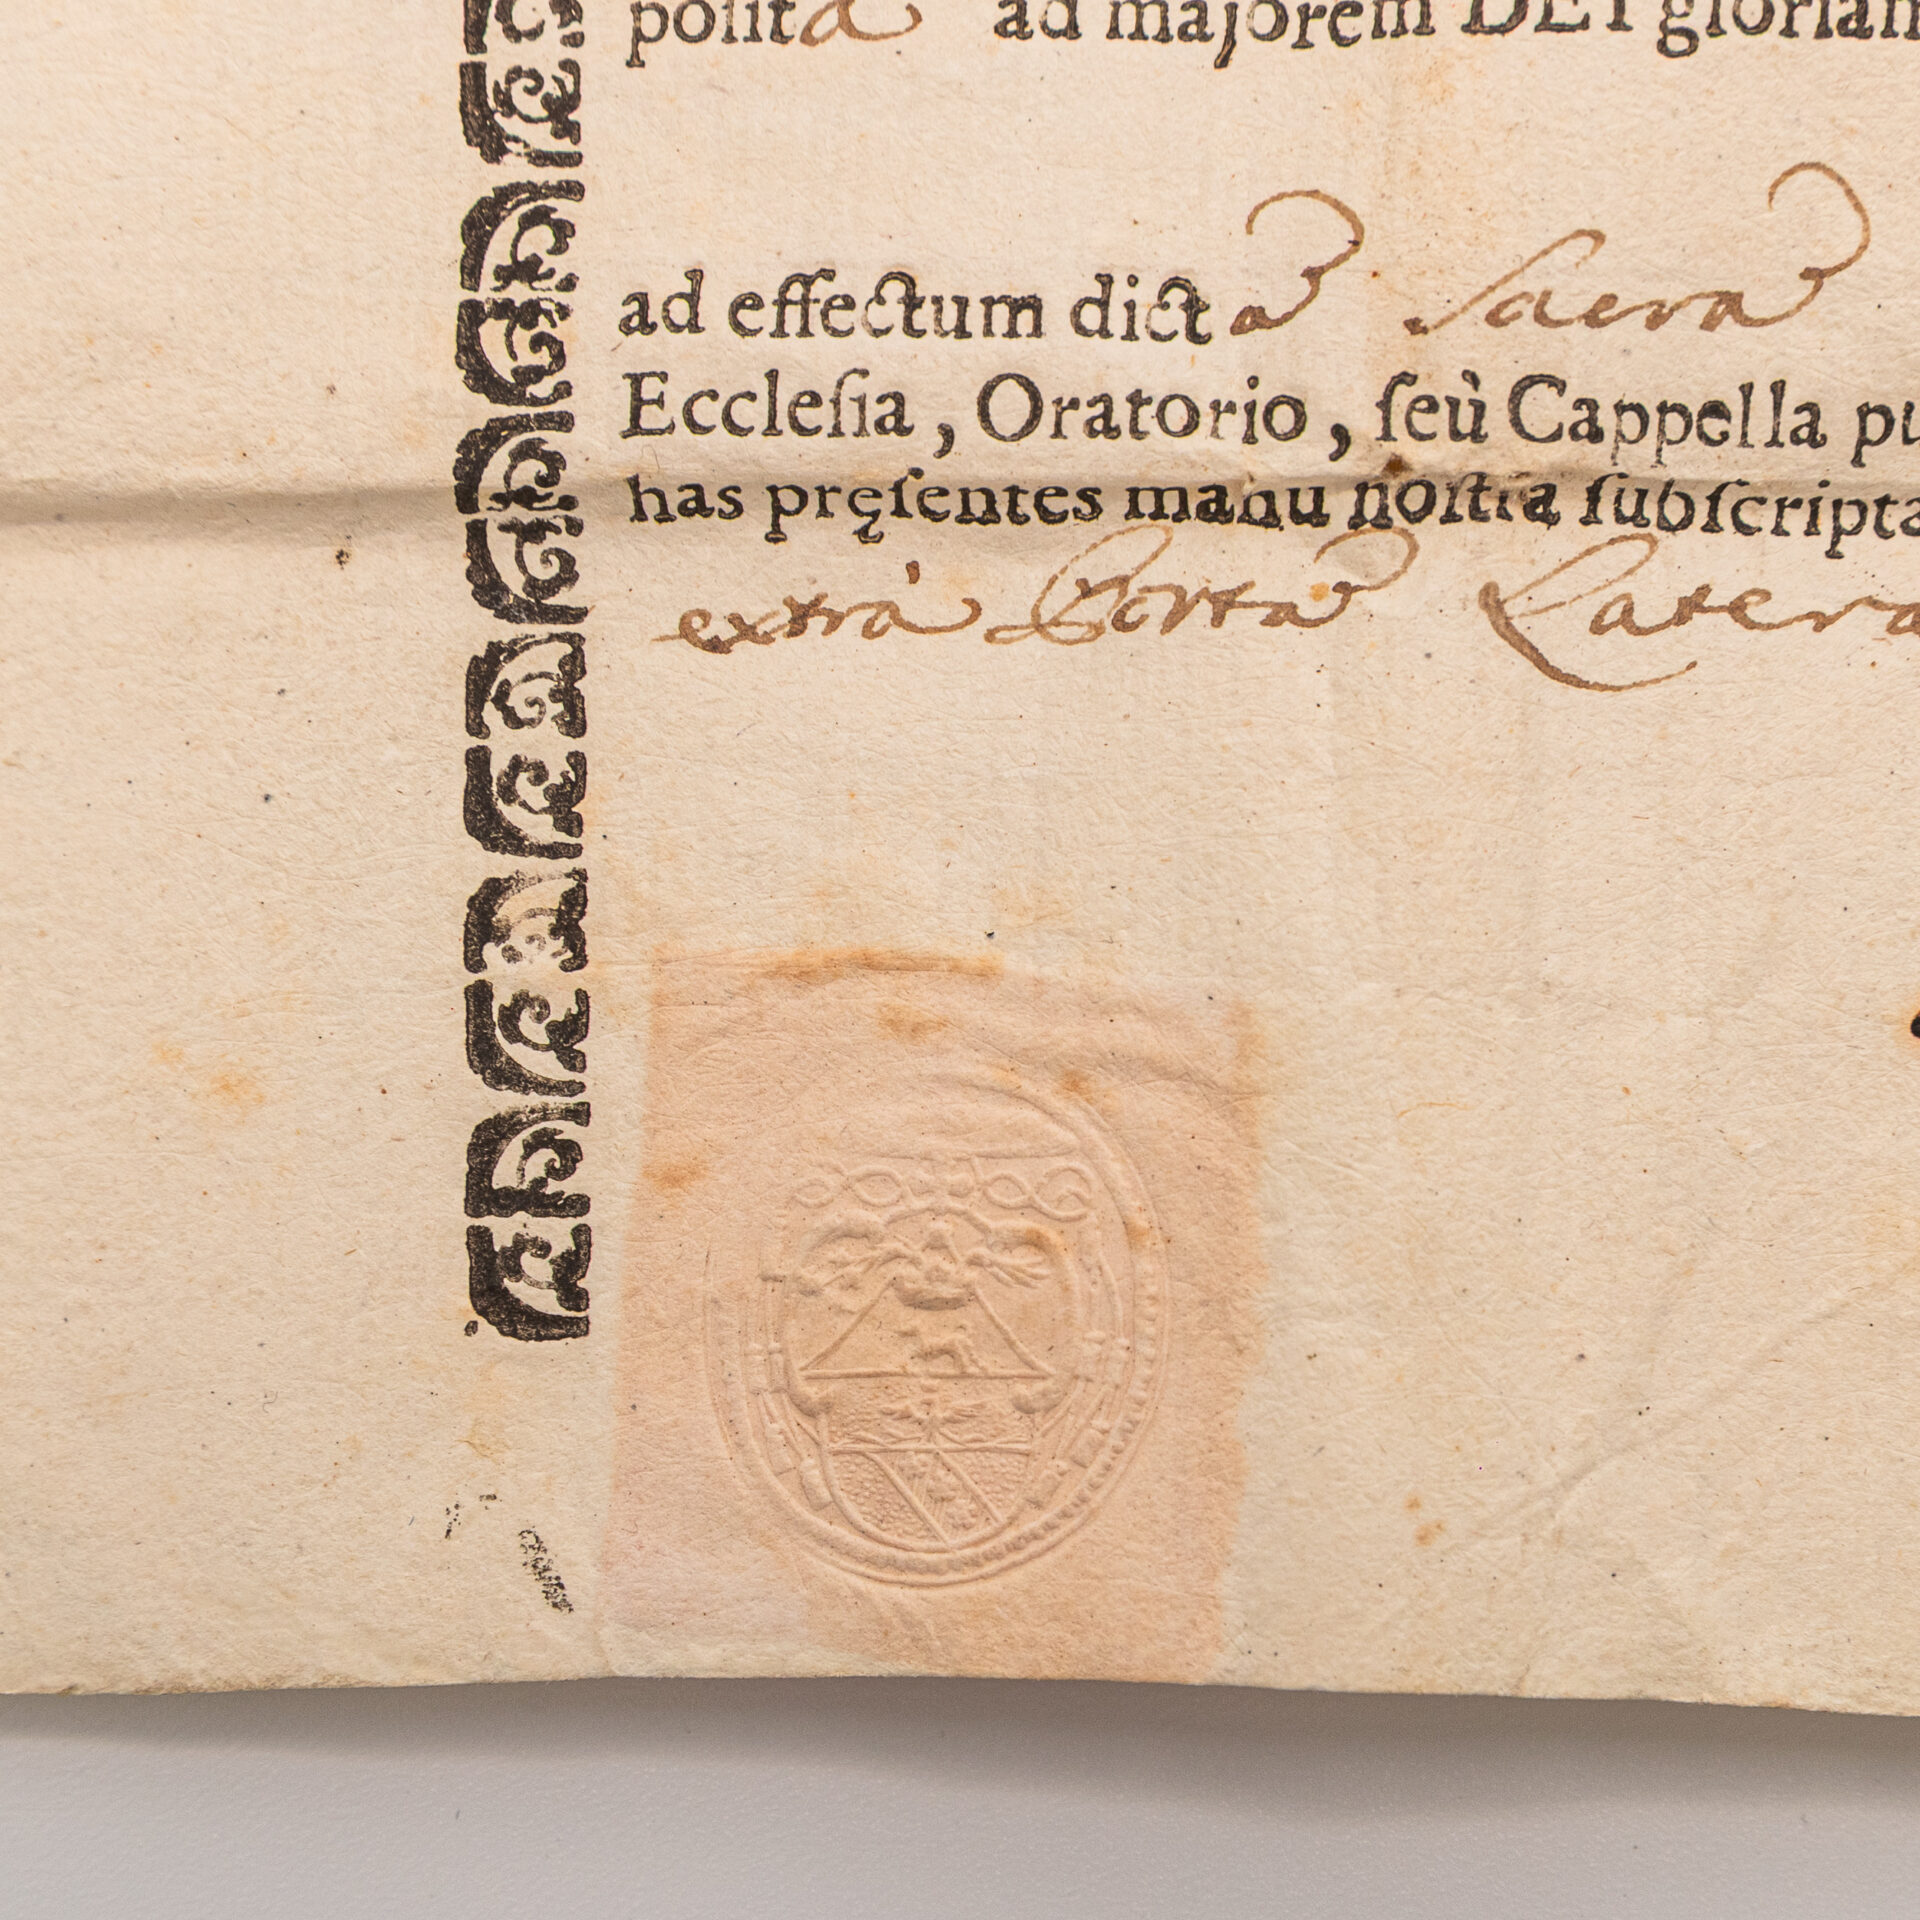 posita ad majorem DEI gloriam
ad effectum dicta Sacra
Ecclesia, Oratorio, seù Cappella pu
has pręsentes manu nostra subscripta
extrà Porta Latera